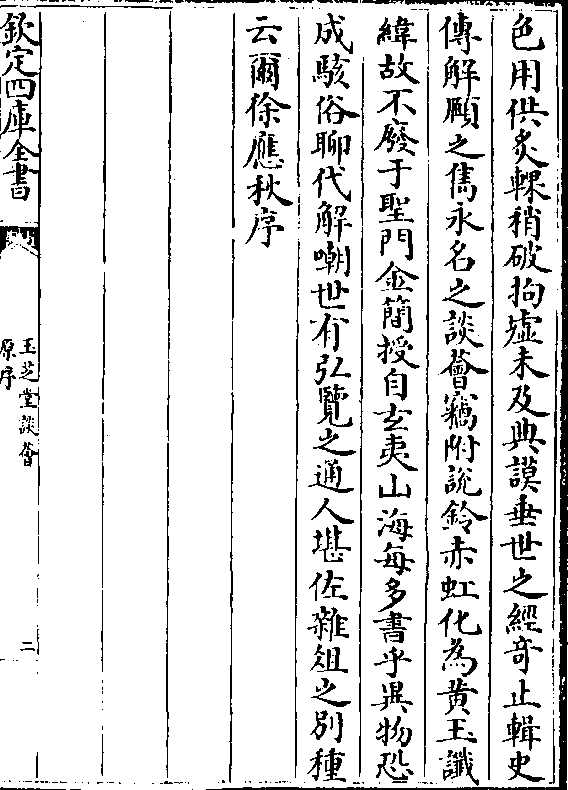 色用供炙輠稍破拘墟未及典謨垂世之經奇止輯史
傳解頤之雋永名之談薈竊附說鈴赤虹化為黄玉讖
緯故不廢于聖門金簡授自玄夷山海每多書乎異物恐
成駭俗聊代解嘲世有弘覽之通人堪佐雜俎之别種
云爾徐應秋序
欽定四庫全書
玉芝堂談薈
原序
二